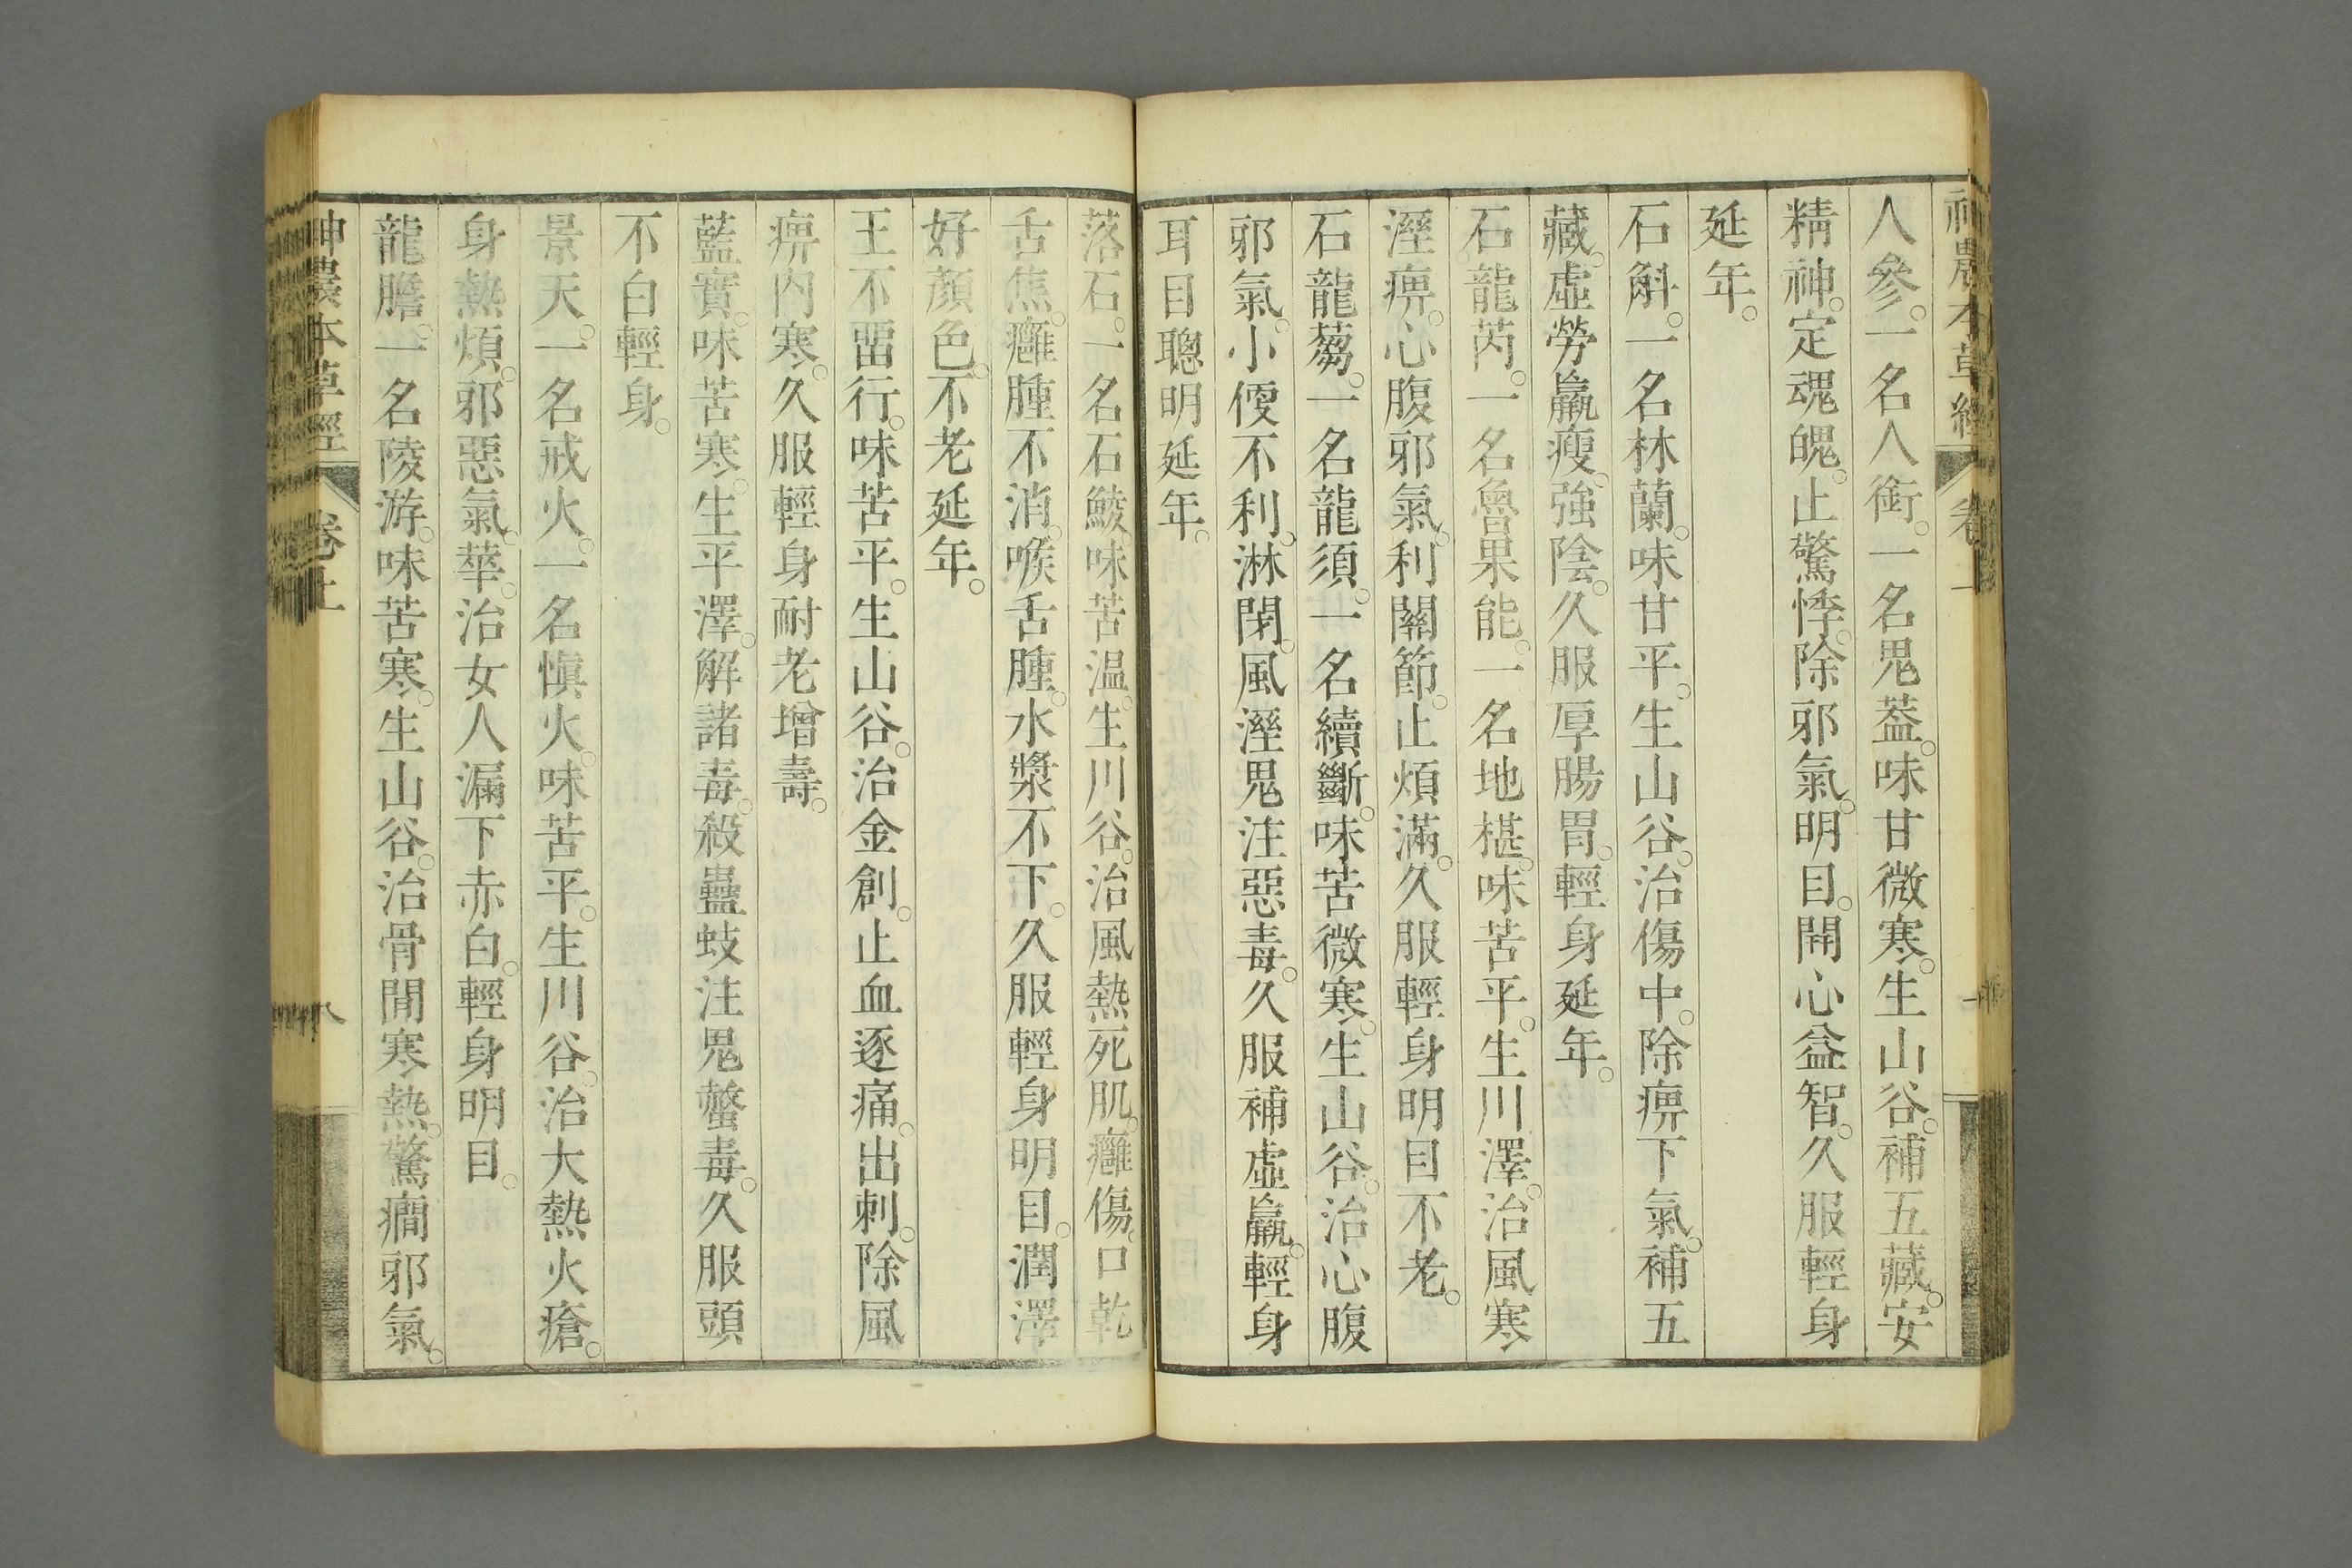 神農本草經 卷上
人參。一名人銜。一名鬼蓋。味甘微寒。生山谷。補五藏。安
精神。定魂魄。止驚悸。除邪氣。明目。開心益智。久服輕身
延年。
石斛。一名林蘭。味甘平。生山谷。治傷中。除痹下氣。補五
藏。虛勞羸瘦。強陰。久服厚腸胃。輕身延年。
石龍芮。一名魯果能。一名地椹。味苦平。生川澤。治風寒
溼痹。心腹邪氣。利關節。止煩滿。久服輕身明目不老。
石龍蒭。一名龍須。一名續斷。味苦微寒。生山谷。治心腹
邪氣。小便不利。淋閉。風溼鬼注惡毒。久服補虛羸。輕身
耳目聰明延年。
落石。一名石鯪。味苦温。生川谷。治風熱死肌。癰傷。口乾
舌焦。癰腫不消。喉舌腫。水漿不下。久服輕身明目。潤澤
好顏色。不老延年。
王不畱行。味苦平。生山谷。治金創。止血逐痛。出刺。除風
痹内寒。久服輕身耐老增壽。
藍實。味苦寒。生平澤。解諸毒。殺蠱蚑注鬼螫毒。久服頭
不白輕身。
景天。一名戒火。一名愼火。味苦平。生川谷。治大熱火瘡。
身熱煩。邪惡氣。華。治女人漏下赤白。輕身明目。
龍膽。一名陵游。味苦寒。生山谷。治骨閒寒熱。驚癇邪氣。
神農本草經 卷上 八